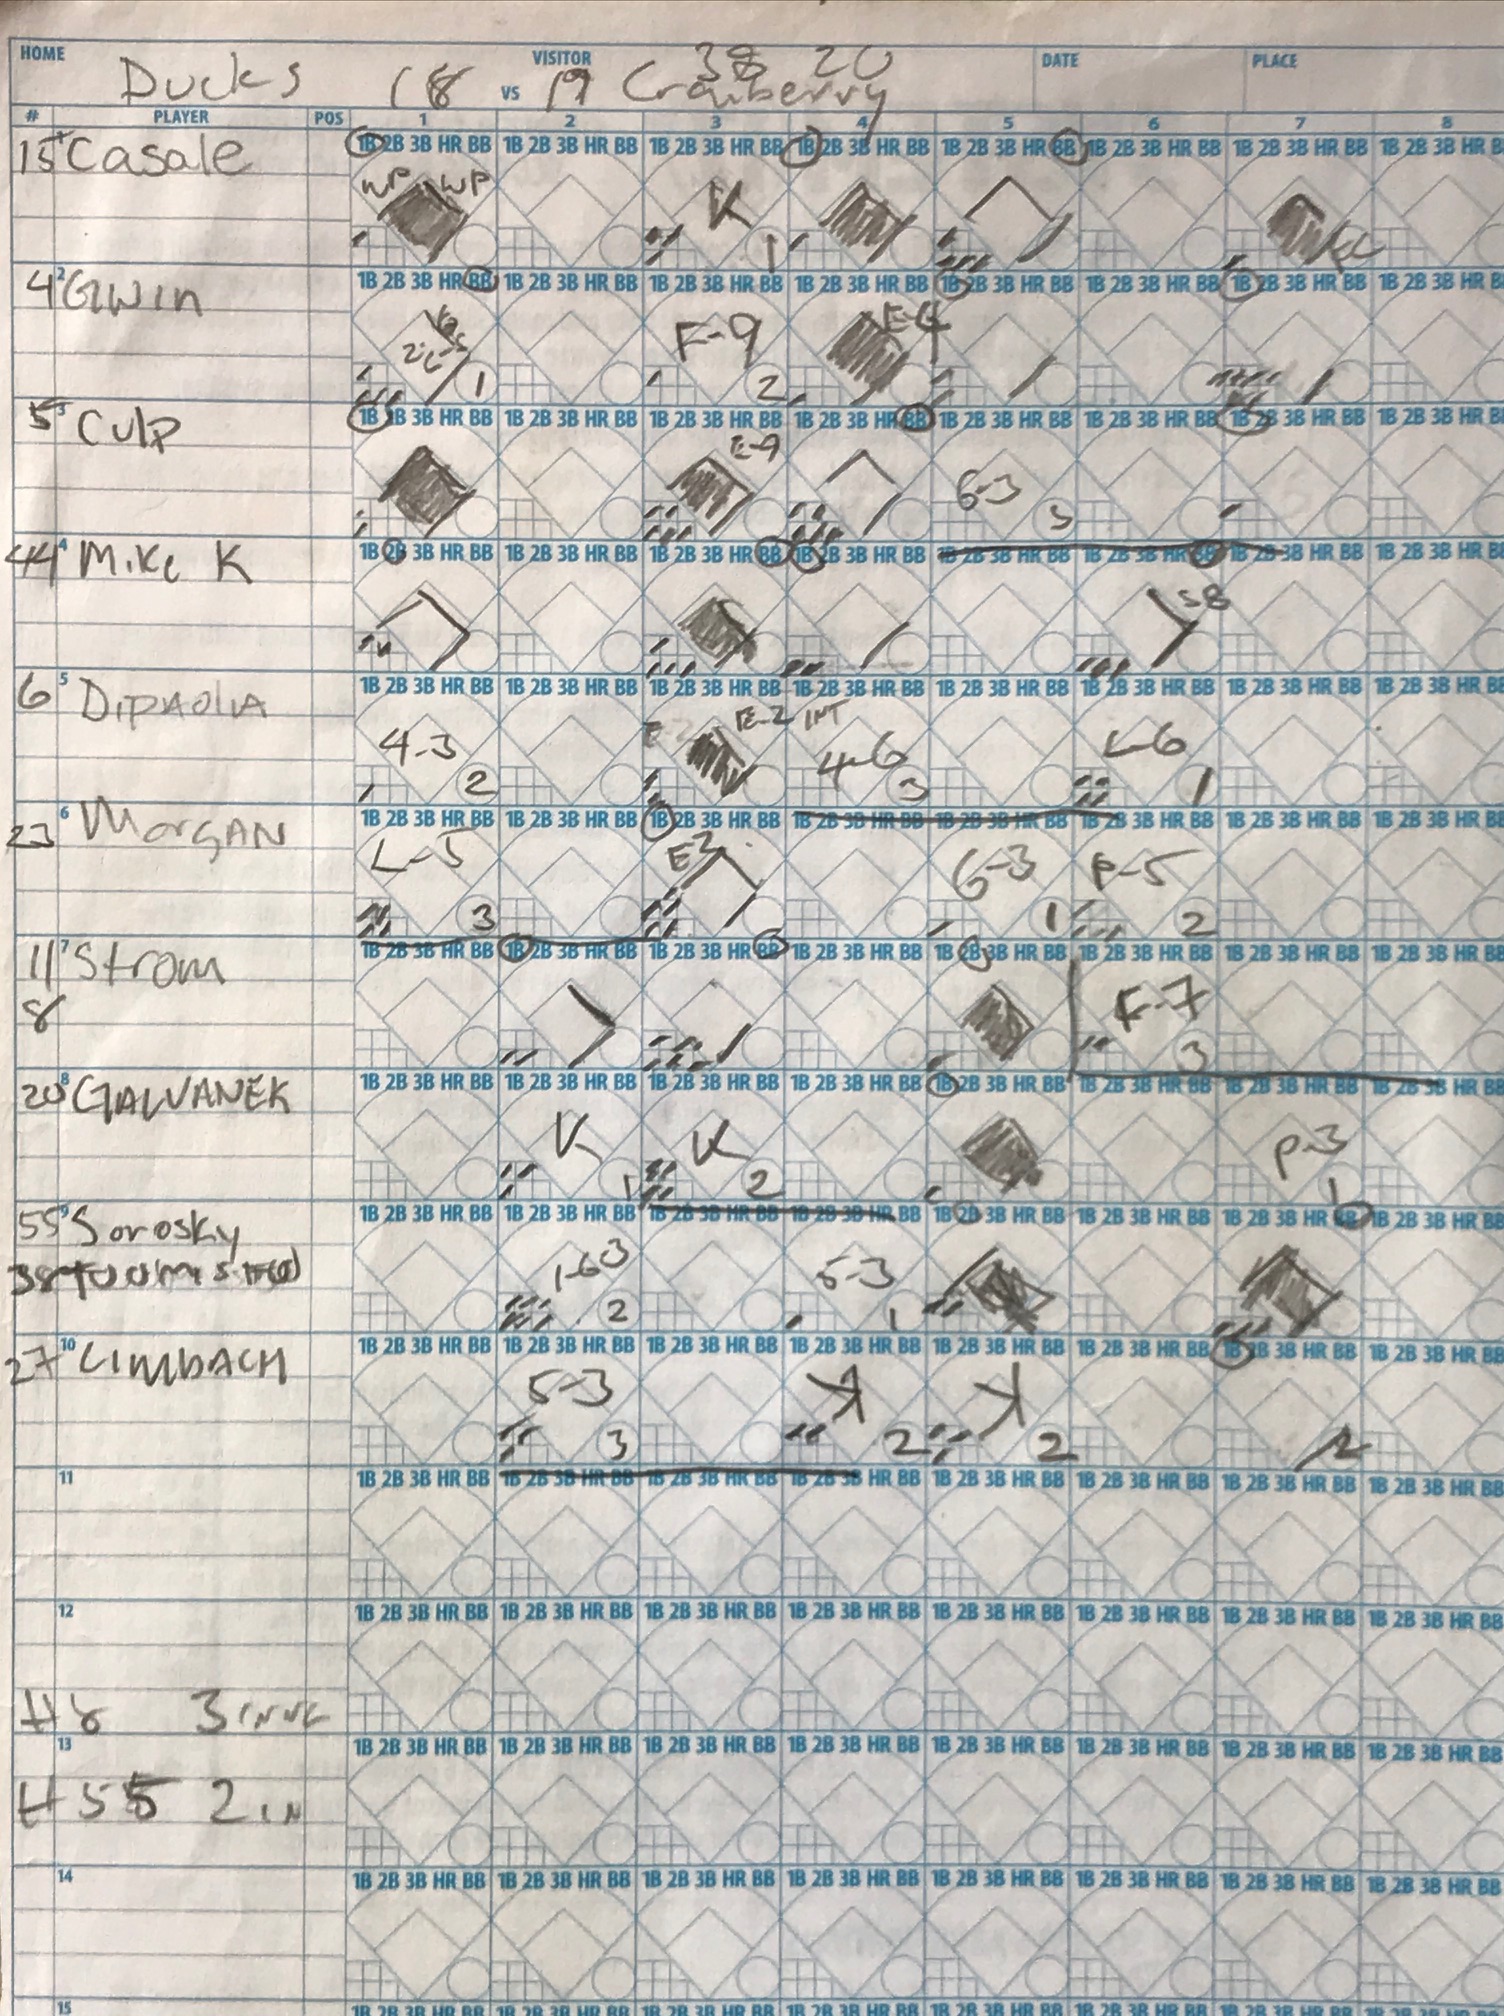 HOME VISITOR 38 20 DATE PLACE
Ducks 18 VS 19 Cranberry
# PLAYER POS 1 2 3 4 5 6 7 8
1B 2B 3B HR BB 1B 2B 3B HR BB 1B 2B 3B HR BB 1B 2B 3B HR BB 1B 2B 3B HR BB 1B 2B 3B HR BB 1B 2B 3B HR BB 1B 2B 3B HR B
15 Casale WP WP K 1
2 1B 2B 3B HR BB 1B 2B 3B HR BB 1B 2B 3B HR BB 1B 2B 3B HR BB 1B 2B 3B HR BB 1B 2B 3B HR BB 1B 2B 3B HR BB 1B 2B 3B HR B
4 Gwin 1 F-9 2 E-4
3 1B 2B 3B HR BB 1B 2B 3B HR BB 1B 2B 3B HR BB 1B 2B 3B HR BB 1B 2B 3B HR BB 1B 2B 3B HR BB 1B 2B 3B HR BB 1B 2B 3B HR B
5 Culp E-9 6-3 3
4 1B 2B 3B HR BB 1B 2B 3B HR BB 1B 2B 3B HR BB 1B 2B 3B HR BB 1B 2B 3B HR BB 1B 2B 3B HR BB 1B 2B 3B HR BB 1B 2B 3B HR BB
44 Mike K SB
5 1B 2B 3B HR BB 1B 2B 3B HR BB 1B 2B 3B HR BB 1B 2B 3B HR BB 1B 2B 3B HR BB 1B 2B 3B HR BB 1B 2B 3B HR BB 1B 2B 3B HR BB
6 DiPAOlA 4-3 2 E-2 INT 4-6 3 L-6 1
6 1B 2B 3B HR BB 1B 2B 3B HR BB 1B 2B 3B HR BB 1B 2B 3B HR BB 1B 2B 3B HR BB 1B 2B 3B HR BB 1B 2B 3B HR BB 1B 2B 3B HR BB
23 MorgAN L-5 3 E3 6-3 1 P-5 2
7 1B 2B 3B HR BB 1B 2B 3B HR BB 1B 2B 3B HR BB 1B 2B 3B HR BB 1B 2B 3B HR BB 1B 2B 3B HR BB 1B 2B 3B HR BB 1B 2B 3B HR BB
11 Strom F-7 3
8
8 1B 2B 3B HR BB 1B 2B 3B HR BB 1B 2B 3B HR BB 1B 2B 3B HR BB 1B 2B 3B HR BB 1B 2B 3B HR BB 1B 2B 3B HR BB 1B 2B 3B HR BB
20 GALVANEK K 1 K 2 P-3 1
9 1B 2B 3B HR BB 1B 2B 3B HR BB 1B 2B 3B HR BB 1B 2B 3B HR BB 1B 2B 3B HR BB 1B 2B 3B HR BB 1B 2B 3B HR BB 1B 2B 3B HR BB
55 Sorosky 1-63 2 5-3 1
38
10 1B 2B 3B HR BB 1B 2B 3B HR BB 1B 2B 3B HR BB 1B 2B 3B HR BB 1B 2B 3B HR BB 1B 2B 3B HR BB 1B 2B 3B HR BB 1B 2B 3B HR BB
27 LIMBACH 5-3 3 K 2 K 2
11 1B 2B 3B HR BB 1B 2B 3B HR BB 1B 2B 3B HR BB 1B 2B 3B HR BB 1B 2B 3B HR BB 1B 2B 3B HR BB 1B 2B 3B HR BB 1B 2B 3B HR BB
12 1B 2B 3B HR BB 1B 2B 3B HR BB 1B 2B 3B HR BB 1B 2B 3B HR BB 1B 2B 3B HR BB 1B 2B 3B HR BB 1B 2B 3B HR BB 1B 2B 3B HR BB
#8 3
13 1B 2B 3B HR BB 1B 2B 3B HR BB 1B 2B 3B HR BB 1B 2B 3B HR BB 1B 2B 3B HR BB 1B 2B 3B HR BB 1B 2B 3B HR BB 1B 2B 3B HR BB
#55 2 IN
14 1B 2B 3B HR BB 1B 2B 3B HR BB 1B 2B 3B HR BB 1B 2B 3B HR BB 1B 2B 3B HR BB 1B 2B 3B HR BB 1B 2B 3B HR BB 1B 2B 3B HR BB
15